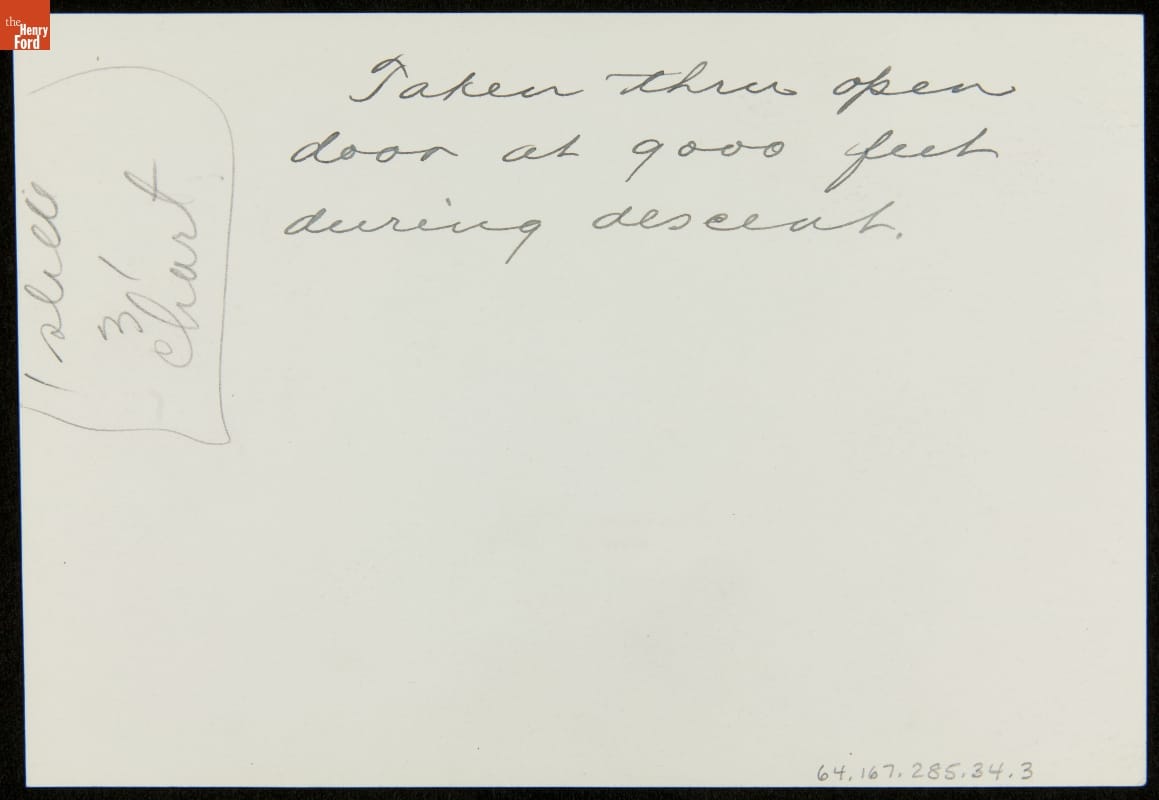 the
Henry
Ford
Taken thru open
door at 9000 feet
during descent.
3'
Chart
64.167.285.34.3